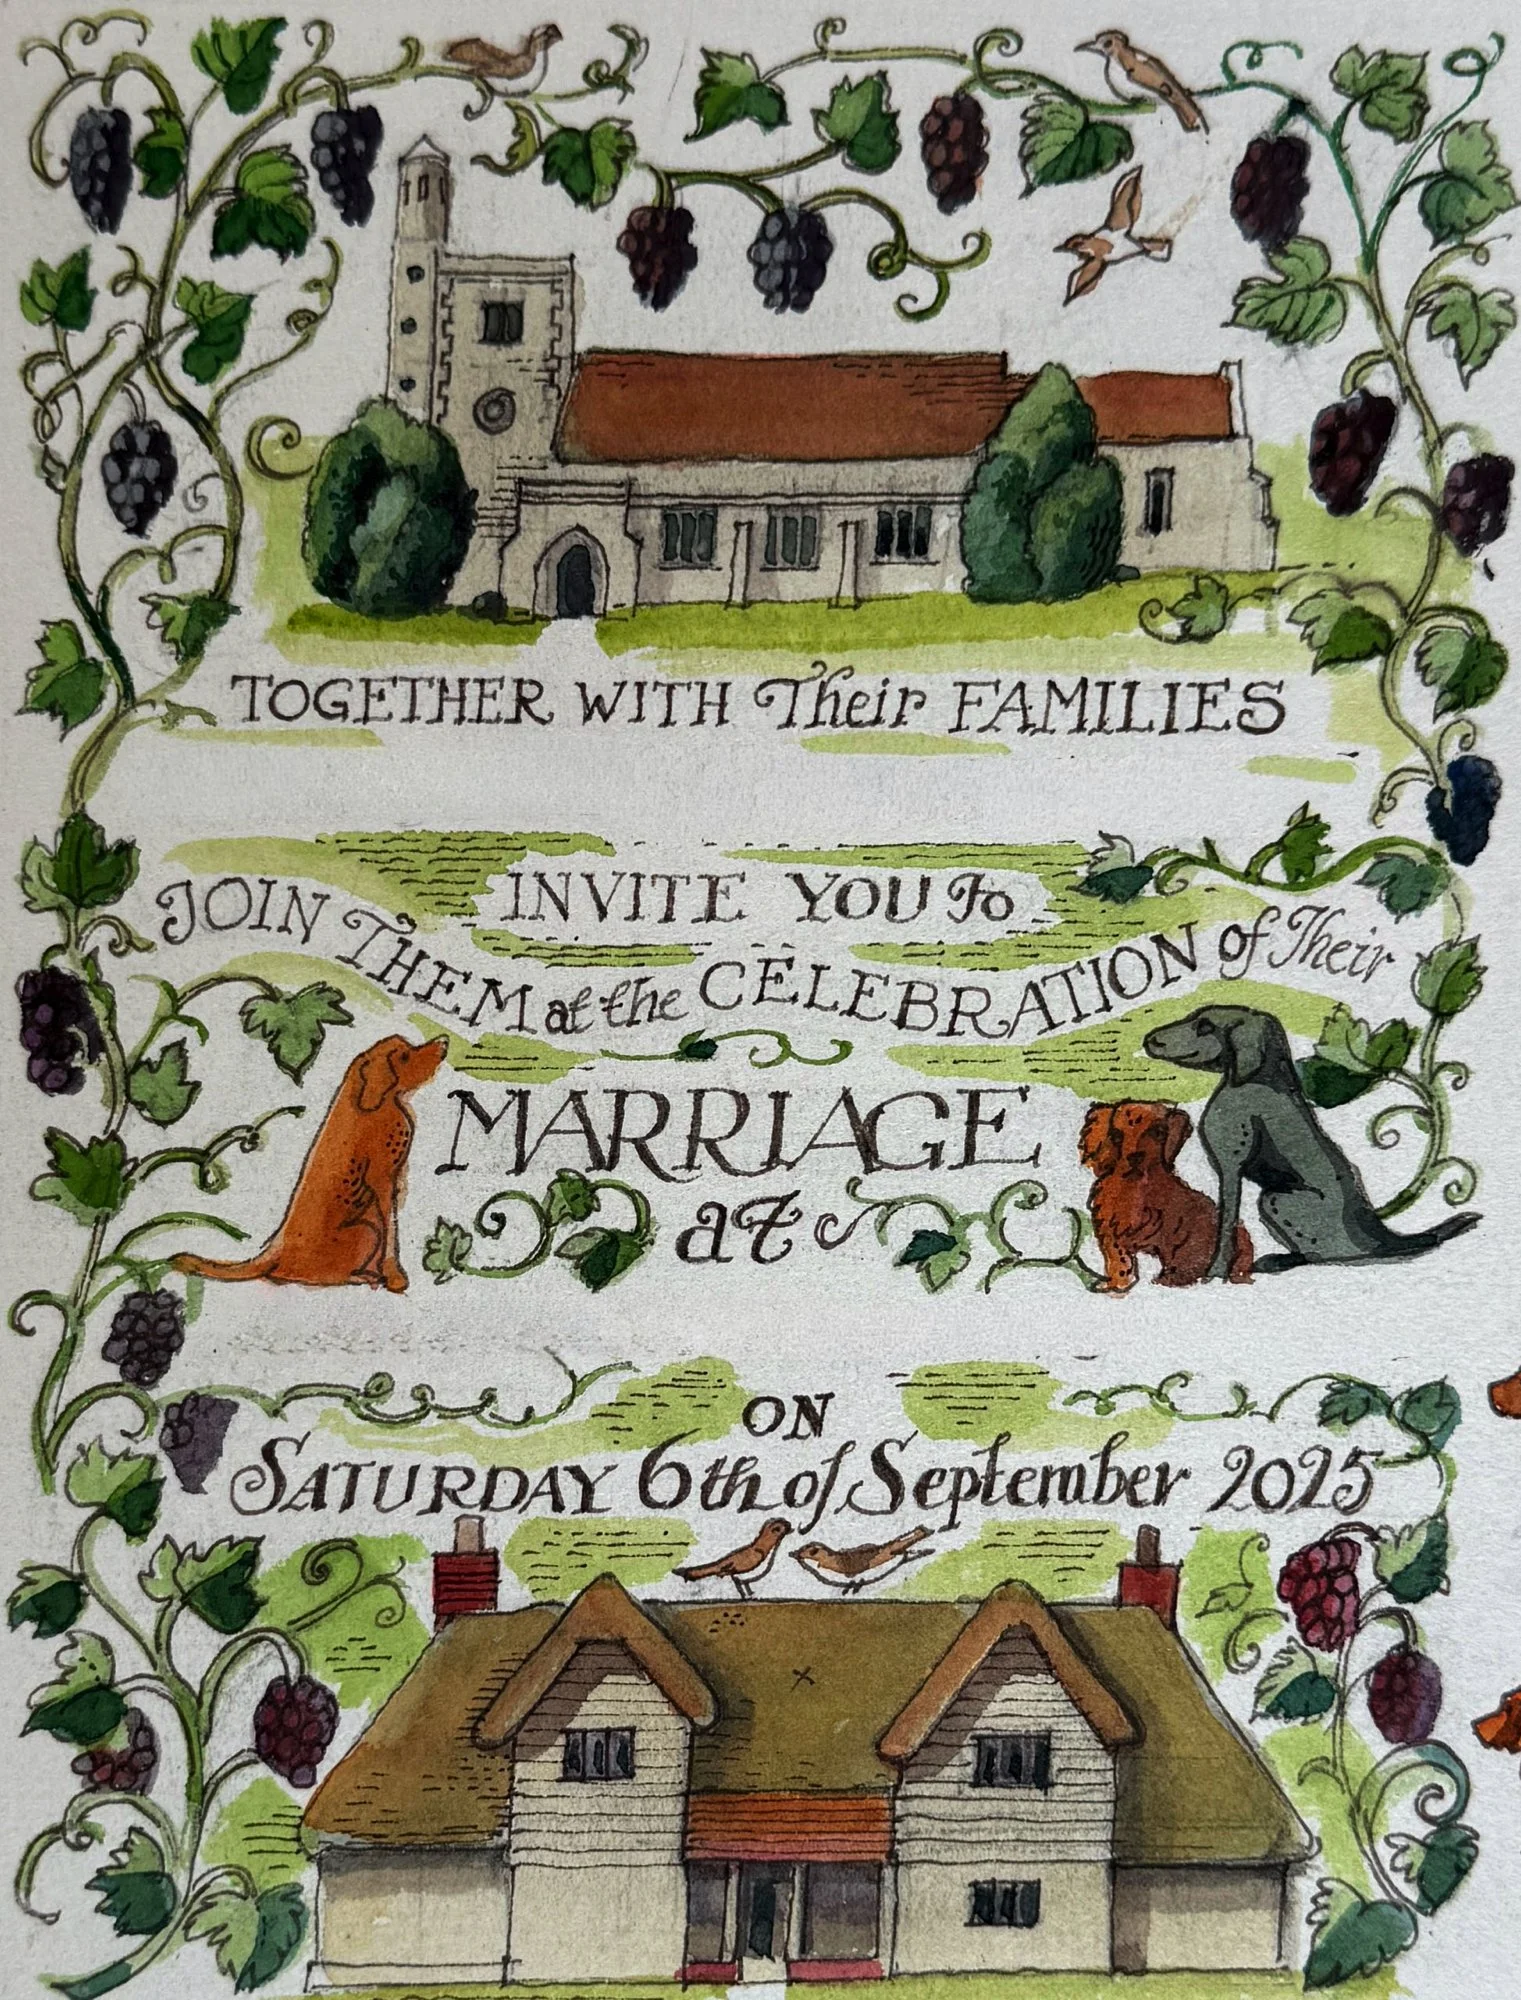 TOGETHER WITH Their FAMILIES
INVITE YOU To
JOIN THEM at the CELEBRATION of Their
MARRIAGE
at
ON
SATURDAY 6th of September 2025